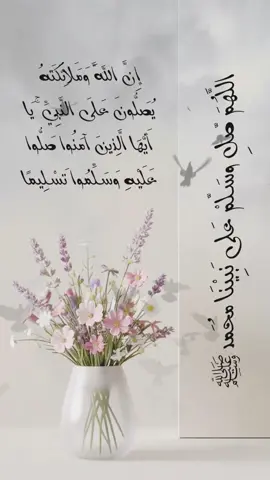 إِنَّ اللَّهَ وَمَلَائِكَتَهُ
يُصَلُّونَ عَلَى النَّبِيِّ ۚ يَا
أَيُّهَا الَّذِينَ آمَنُوا صَلُّوا
عَلَيْهِ وَسَلِّمُوا تَسْلِيمًا
اللَّهُمَّ صَلِّ وَسَلِّمْ عَلَى نَبِيِّنَا مُحَمَّد ﷺ